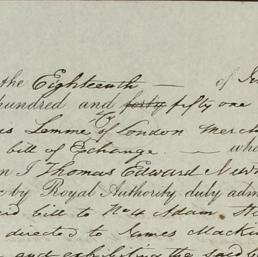 the Eighteenth — of
hundred and forty fifty one
Lomme of London Merch
bill of Exchange. — wh
I Thomas Edward
by Royal Authority duly adm
bill to No 4 Adam
directed to James Mack
and exhibiting the said